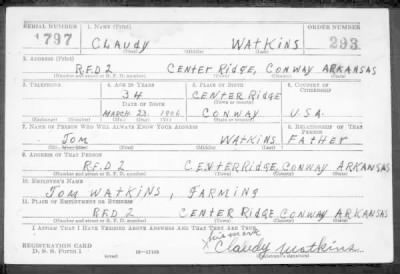 SERIAL NUMBER 1. NAME (Print) ORDER NUMBER
1797 CLAUDY WATKINS 293
(First) (Middle) (Last)
2. ADDRESS (Print)
R.F.D 2 CENTER RIDGE, CONWAY ARKANSAS
(Number and street or R. F. D. number) (Town) (County) (State)
3. TELEPHONE 4. AGE IN YEARS 5. PLACE OF BIRTH 6. COUNTRY OF CITIZENSHIP
34 CENTER RIDGE
DATE OF BIRTH (Town or county)
MARCH 23 1906 CONWAY U.S.A.
(Exchange) (Number) (Mo.) (Day) (Yr.) (State or country)
7. NAME OF PERSON WHO WILL ALWAYS KNOW YOUR ADDRESS 8. RELATIONSHIP OF THAT PERSON
TOM WATKINS FATHER
(First) (Middle) (Last)
9. ADDRESS OF THAT PERSON
R.F.D 2 CENTER RIDGE, CONWAY ARKANSAS
(Number and street or R. F. D. number) (Town) (County) (State)
10. EMPLOYER'S NAME
TOM WATKINS, FARMING
11. PLACE OF EMPLOYMENT OR BUSINESS
RFD 2 CENTER RIDGE CONWAY ARKANSAS
(Number and street or R. F. D. number) (Town) (County) (State)
I AFFIRM THAT I HAVE VERIFIED ABOVE ANSWERS AND THAT THEY ARE TRUE.
his mark
REGISTRATION CARD X Claudy Watkins
D. S. S. Form 1 16—17105